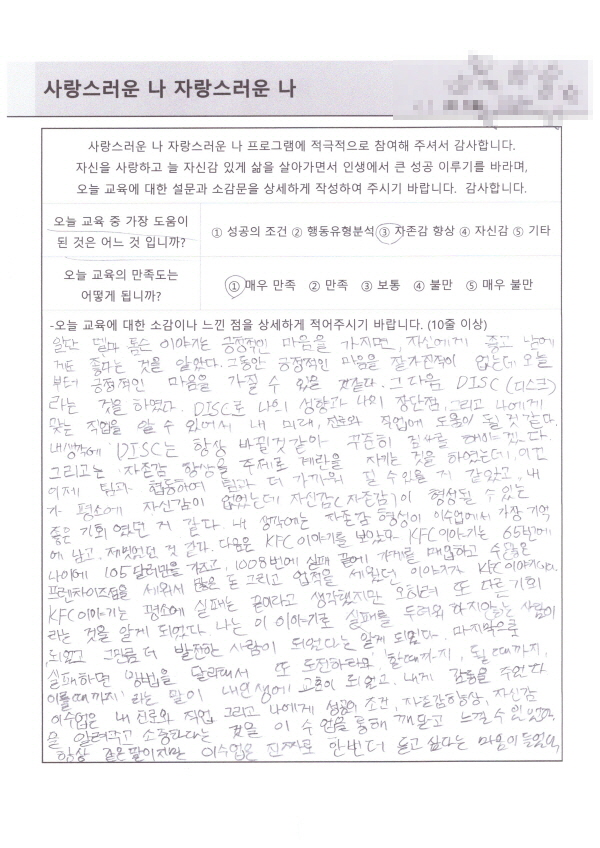 사랑스러운 나 자랑스러운 나
사랑스러운 나 자랑스러운 나 프로그램에 적극적으로 참여해 주셔서 감사합니다.
자신을 사랑하고 늘 자신감 있게 삶을 살아가면서 인생에서 큰 성공 이루기를 바라며,
오늘 교육에 대한 설문과 소감문을 상세하게 작성하여 주시기 바랍니다. 감사합니다.
오늘 교육 중 가장 도움이
된 것은 어느 것 입니까?
① 성공의 조건 ② 행동유형분석 ③ 자존감 향상 ④ 자신감 ⑤ 기타
오늘 교육의 만족도는
어떻게 됩니까?
① 매우 만족 ② 만족 ③ 보통 ④ 불만 ⑤ 매우 불만
-오늘 교육에 대한 소감이나 느낀 점을 상세하게 적어주시기 바랍니다. (10줄 이상)
일단 델마 톰슨 이야기는 긍정적인 마음을 가지면, 자신에게 좋고 남에
게도 좋다는 것을 알았다. 그동안 긍정적인 마음을 잘 가진적이 없는데 오늘
부터 긍정적인 마음을 가질 수 있을 것같다. 그 다음 DISC (디스크)
라는 것을 하였다. DISC로 나의 성향과 나의 장단점, 그리고 나에게
맞는 직업을 알 수 있어서 내 미래, 진로와 직업에 도움이 될 것 같다.
내생각에 DISC는 항상 바뀔것 같아 꾸준히 검사를 해야겠다.
그리고는 자존감 향상을 주제로 계란을 자는 것을 하였는데, 이
이제 팀과 협동하여 팀과 더 가까워 질 수 있을 거 같았고, 내
가 평소에 자신감이 없었는데 자신감(자존감)이 형성될 수 있는
좋은 기회였던 거 같다. 내 생각에는 자존감 형성이 이수업에서 가장 기억
에 남고, 재밌었던 것 같다. 다음은 KFC이야기를 보았다 KFC이야기는 65세에
나이에 105달러만을 가지고, 1008번에 실패 끝에 가게를 매입하고 수많은
프랜차이즈점을 세워서 많은 돈 그리고 업적을 세웠던 이야기가 KFC이야기이다.
KFC이야기는 평소에 실패는 끝이라고 생각했지만 오히려 또 다른 기회
라는 것을 알게 되었다. 나는 이 이야기로 실패를 두려워 하지 않는 사람이
되었고 그만큼 더 발전한 사람이 되었다는 알게 되었다. 마지막으로
실패하면 방법을 달리해서 또 도전하라 '할때까지, 될 때까지,
이룰때까지' 라는 말이 내인생에 교훈이 되었고. 내게 감동을 주었다
이수업은 내 진로와 직업 그리고 나에게 성공의 조건, 자존감향상, 자신감
을 알려주고 소중하다는 것을 이 수업을 통해 깨닫고 느낄수 있었다
항상 같은 말이지만 이수업은 진짜로 한번 더 듣고 싶다는 마음이 들었다,